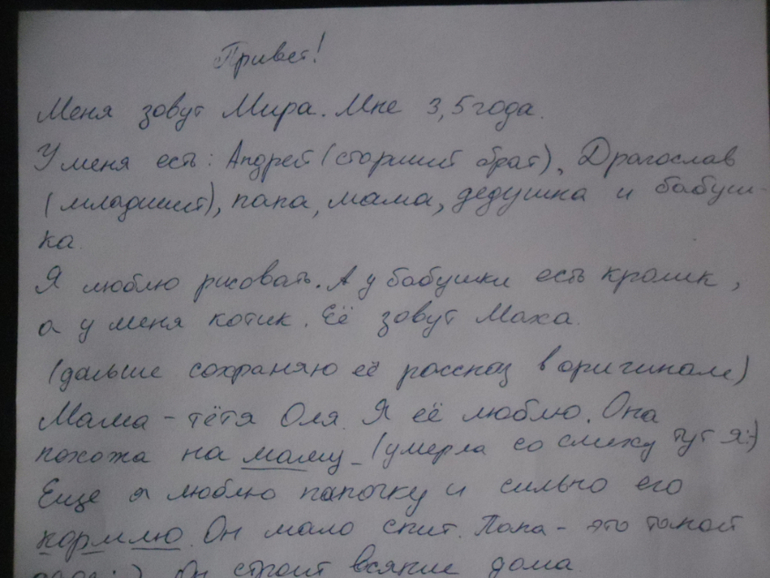 Привет!
Меня зовут Мира. Мне 3,5 года.
У меня есть: Андрей (старший брат), Драгослав
(младший), папа, мама, дедушка и бабуш-
ка.
Я люблю рисовать. А у бабушки есть кролик,
а у меня котик. Её зовут Маха.
(дальше сохраняю её рассказ в оригинале)
Мама - тётя Оля. Я её люблю. Она
похожа на маму - (умерла со смеху тут я:)
Еще я люблю папочку и сильно его
кормлю. Он мало спит. Папа - это такой
Он строит всякие дома